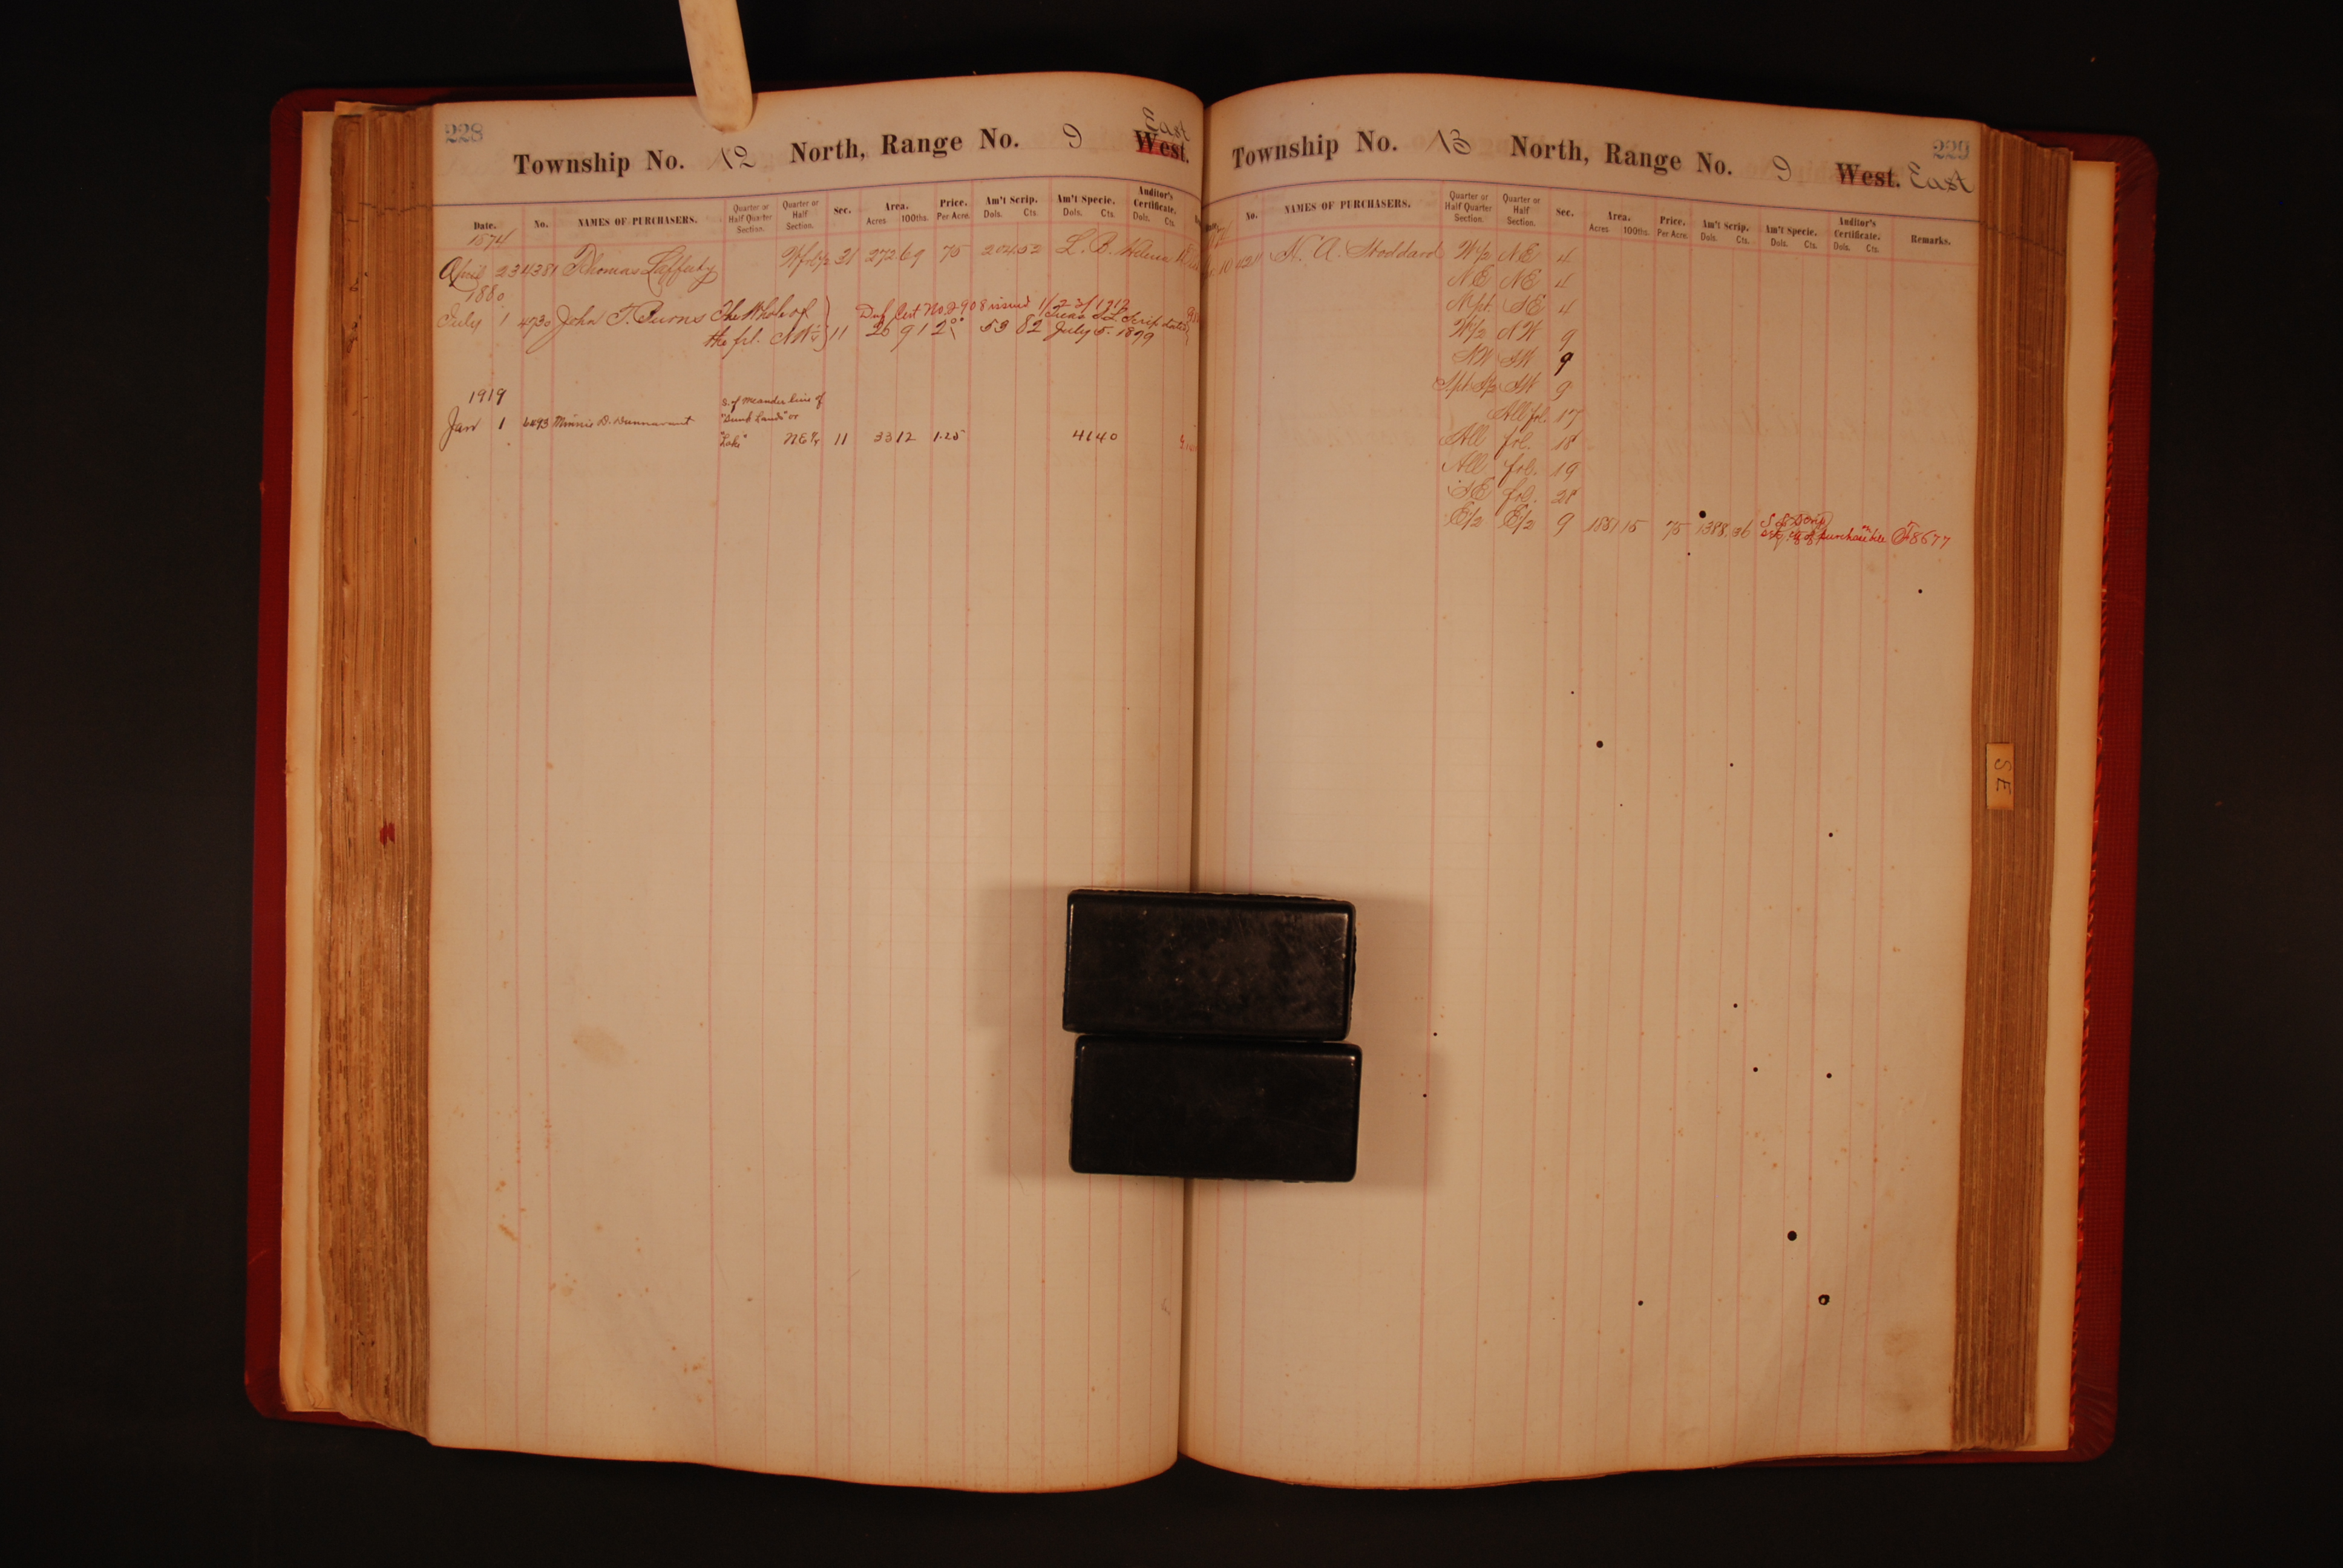 228
Township No. 12 North, Range No. 9 West. East
Date. No. NAMES OF PURCHASERS. Quarter or Half Quarter Section. Quarter or Half Section. Sec. Area. Acres 100ths. Price. Per Acre. Am't Scrip. Dols. Cts. Am't Specie. Dols. Cts. Auditor's Certificate. Dols. Cts.
1874
April 23 4381 Thomas Lafferty 31 272 69 75 204 52 L. B.
1880
Dup Cert No. 2908 issued 1/23/1912
July 1 4730 John T. Burns The Whole of
the frl. NW 11 26 91 2 00 53 82 July 5. 1879
1919
S. of Meander line of
Jan 1 6493 Minnie D. Dunnavant "Sunk Lands" or
"Lake" NE 1/4 11 33 12 1.25 41 40
229
Township No. 13 North, Range No. 9 West. East
No. NAMES OF PURCHASERS. Quarter or Half Quarter Section. Quarter or Half Section. Sec. Area. Acres 100ths. Price. Per Acre. Am't Scrip. Dols. Cts. Am't Specie. Dols. Cts. Auditor's Certificate. Dols. Cts. Remarks.
N. A. Stoddard W 1/2 NE 4
NE NE 4
N pt. SE 4
W 1/2 NW 9
NW SW 9
S 1/2 SW 9
All frl. 17
All frl. 18
All frl. 19
SE frl. 21
E 1/2 E 1/2 9 1851 15 75 1388.36 purchase F8677
SE